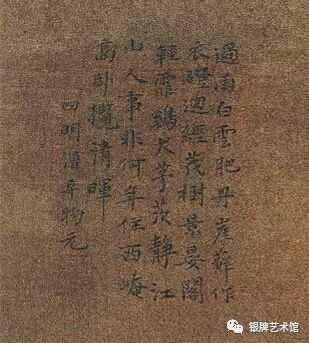 過雨白雲肥丹崖蘚作
衣磴迴經茂樹景晏閣
輕霏鷄犬茅茨靜江
山人事非何年任西崦
高卧攬清暉
四明物元
银牌艺术馆